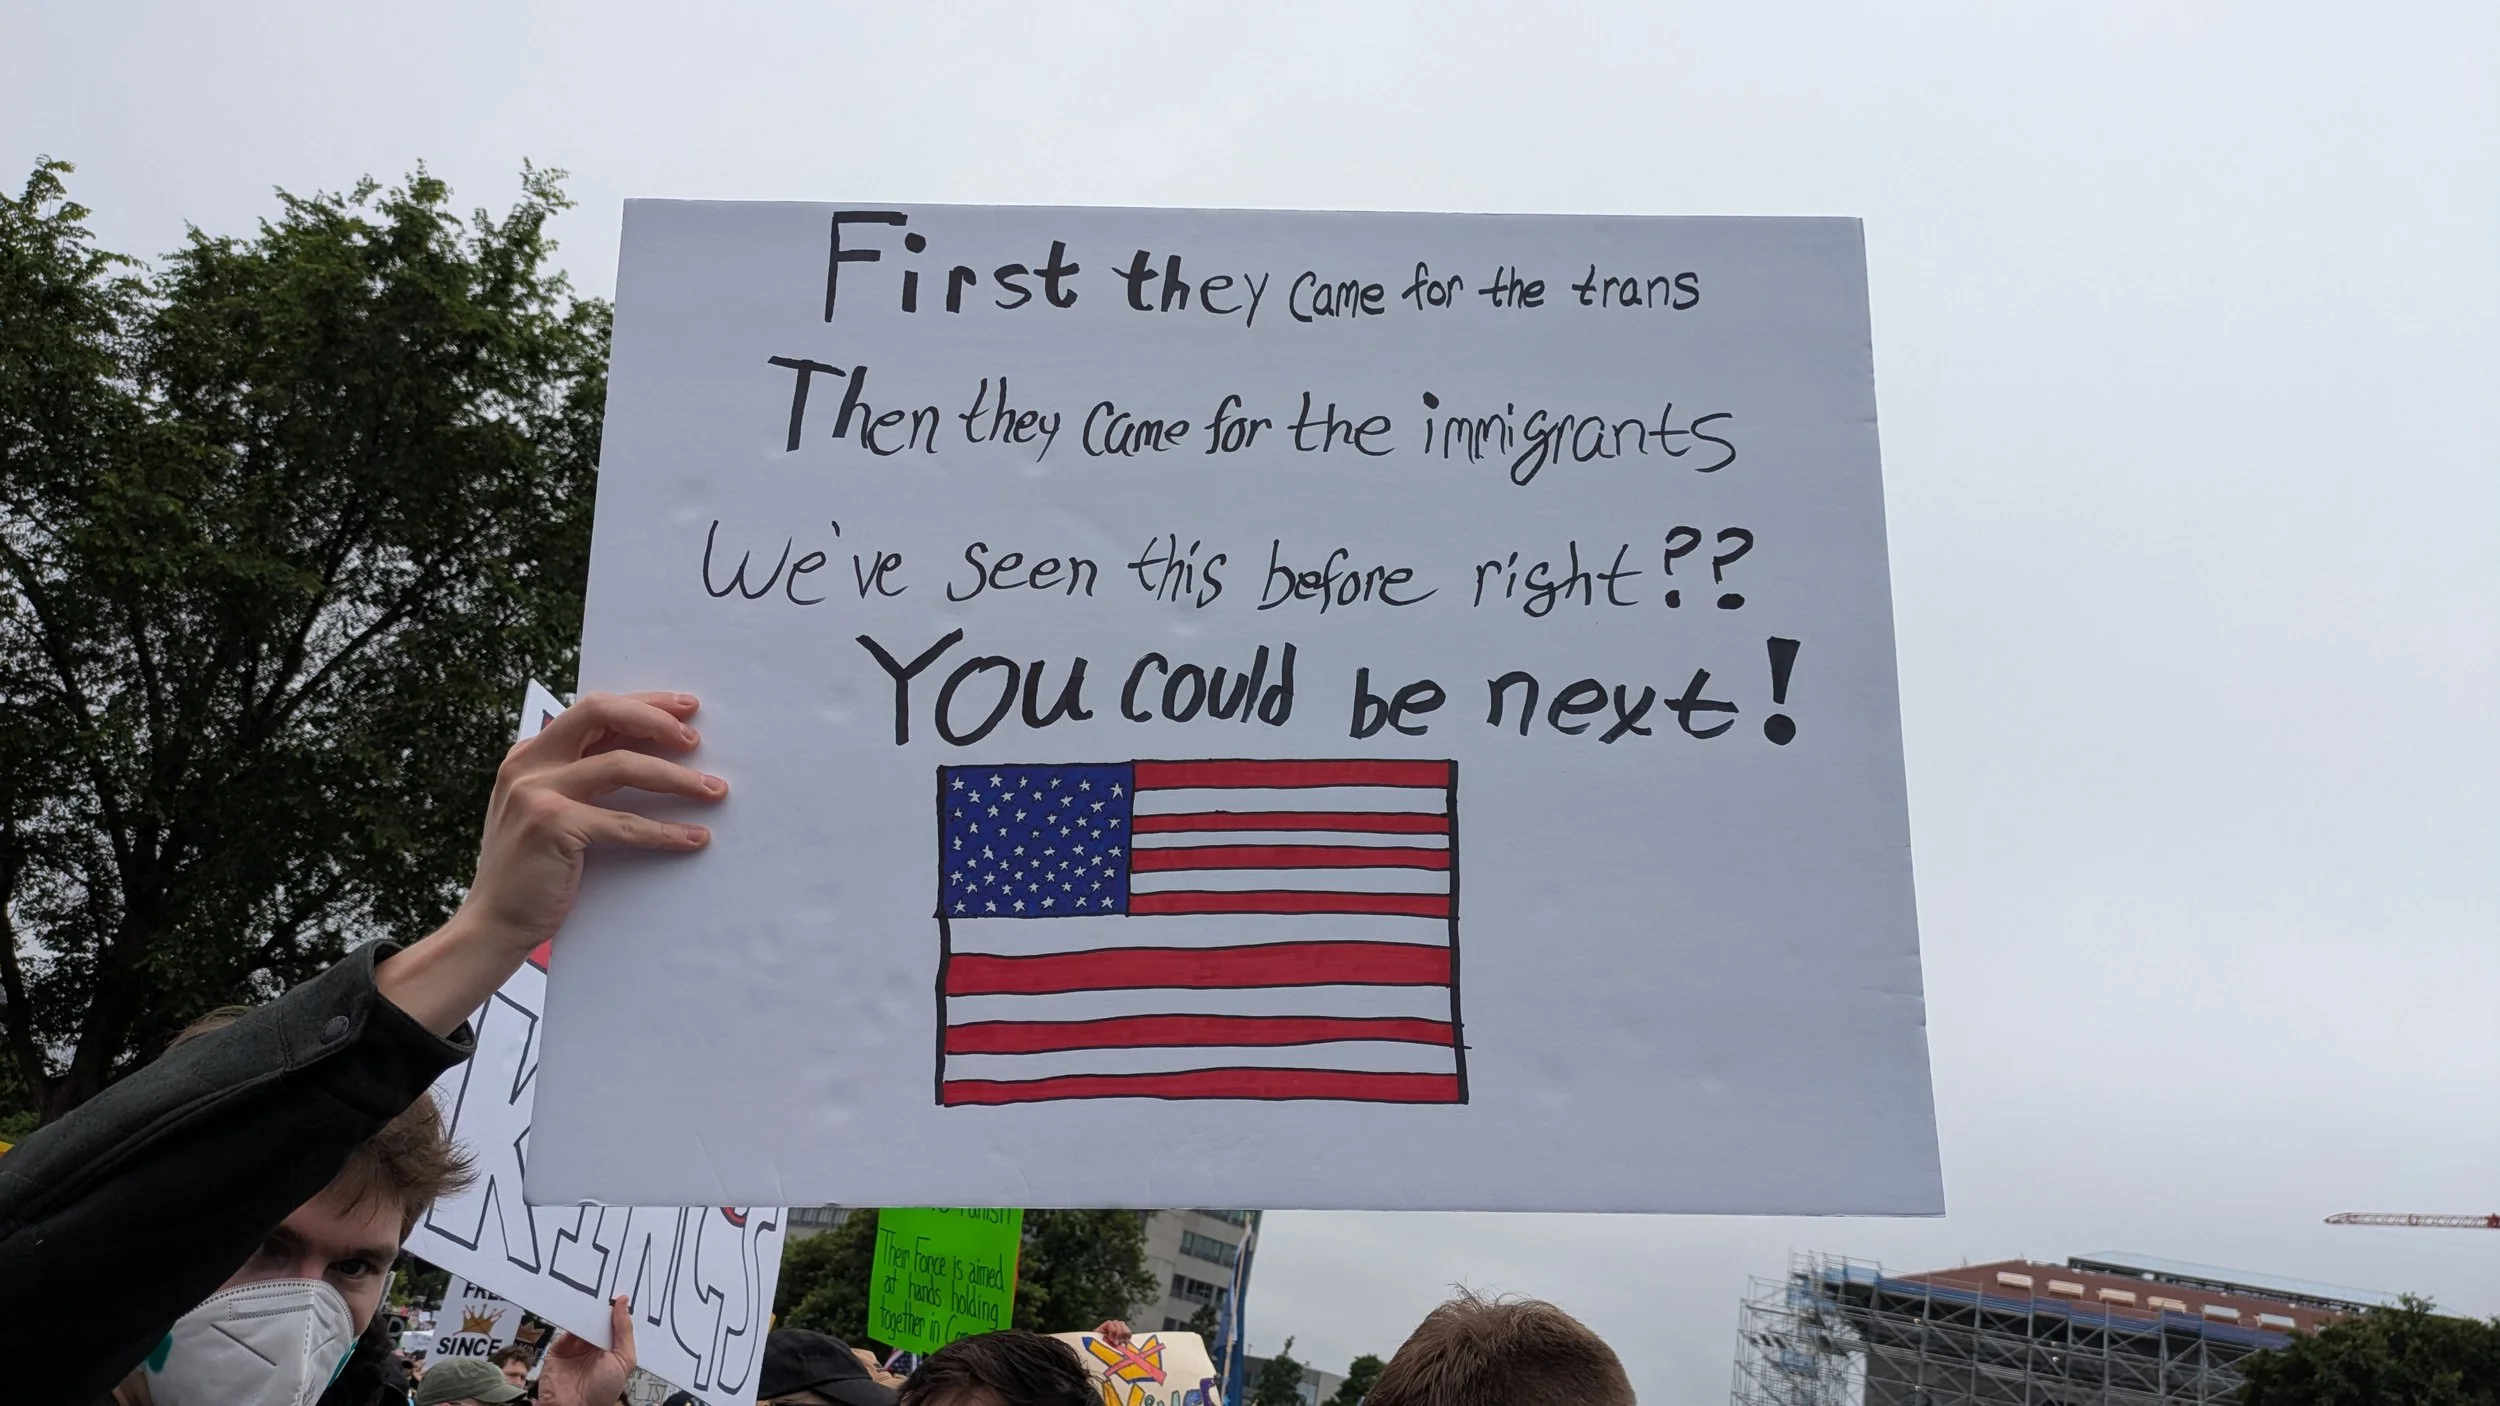 First they came for the trans
Then they came for the immigrants
We've seen this before right??
You could be next!
KINGS
SINCE
Punish
Their Force is aimed
at hands holding
together in